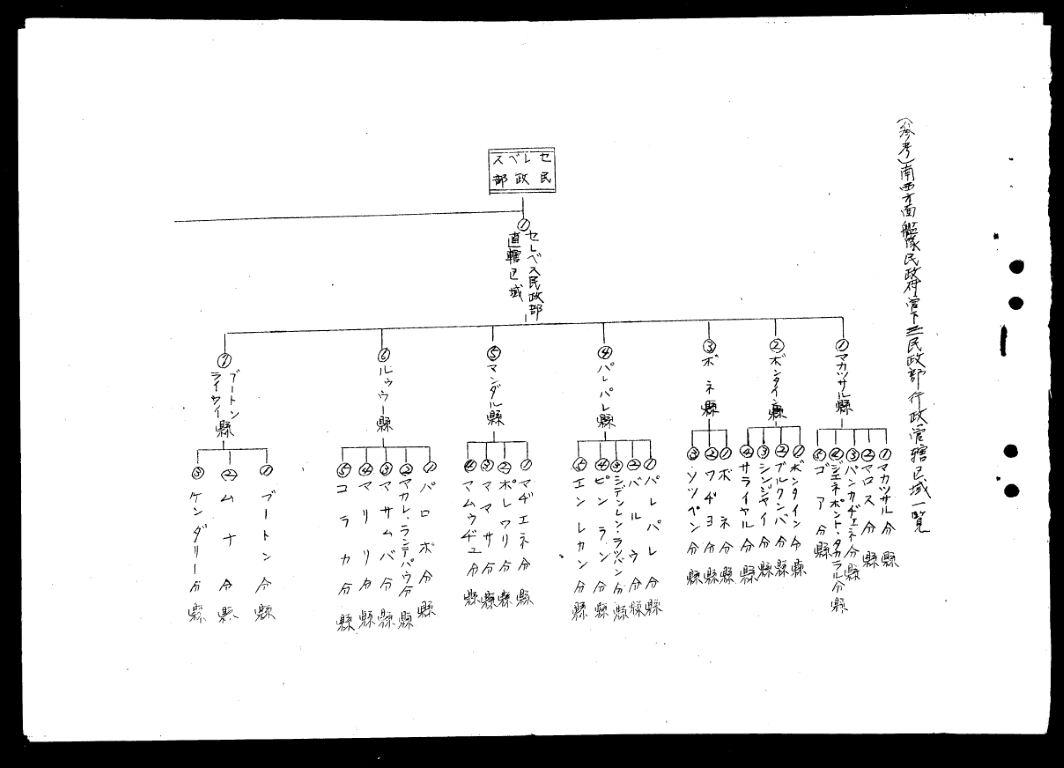 (参考)南西方面艦隊民政府管下三民政部行政管轄区域一覧
セレベス
民政部
①セレベス民政部
直轄区域
①マカッサル縣
①マカッサル分縣
②マロス分縣
③パンカヂェネ分縣
④ジェネポント・タカラル分縣
⑤ゴア分縣
②ボンタイン縣
①ボンタイン分縣
②ブルクンバ分縣
③シンジャイ分縣
④サライヤル分縣
③ボネ縣
①ボネ分縣
②ワヂヨ分縣
③ソツペン分縣
④パレパレ縣
①パレパレ分縣
②バルウ分縣
③シデンレン・ラツパン分縣
④ピンラン分縣
⑤エンレカン分縣
⑤マンダル縣
①マヂエネ分縣
②ポレワリ分縣
③ママサ分縣
④マムウヂユ分縣
⑥ルウウー縣
①パロポ分縣
②マカレ・ランテパウ分縣
③マサムバ分縣
④マリリ分縣
⑤コラカ分縣
⑦ブートン
ライウイ縣
①ブートン分縣
②ムナ分縣
③ケンダリー分縣